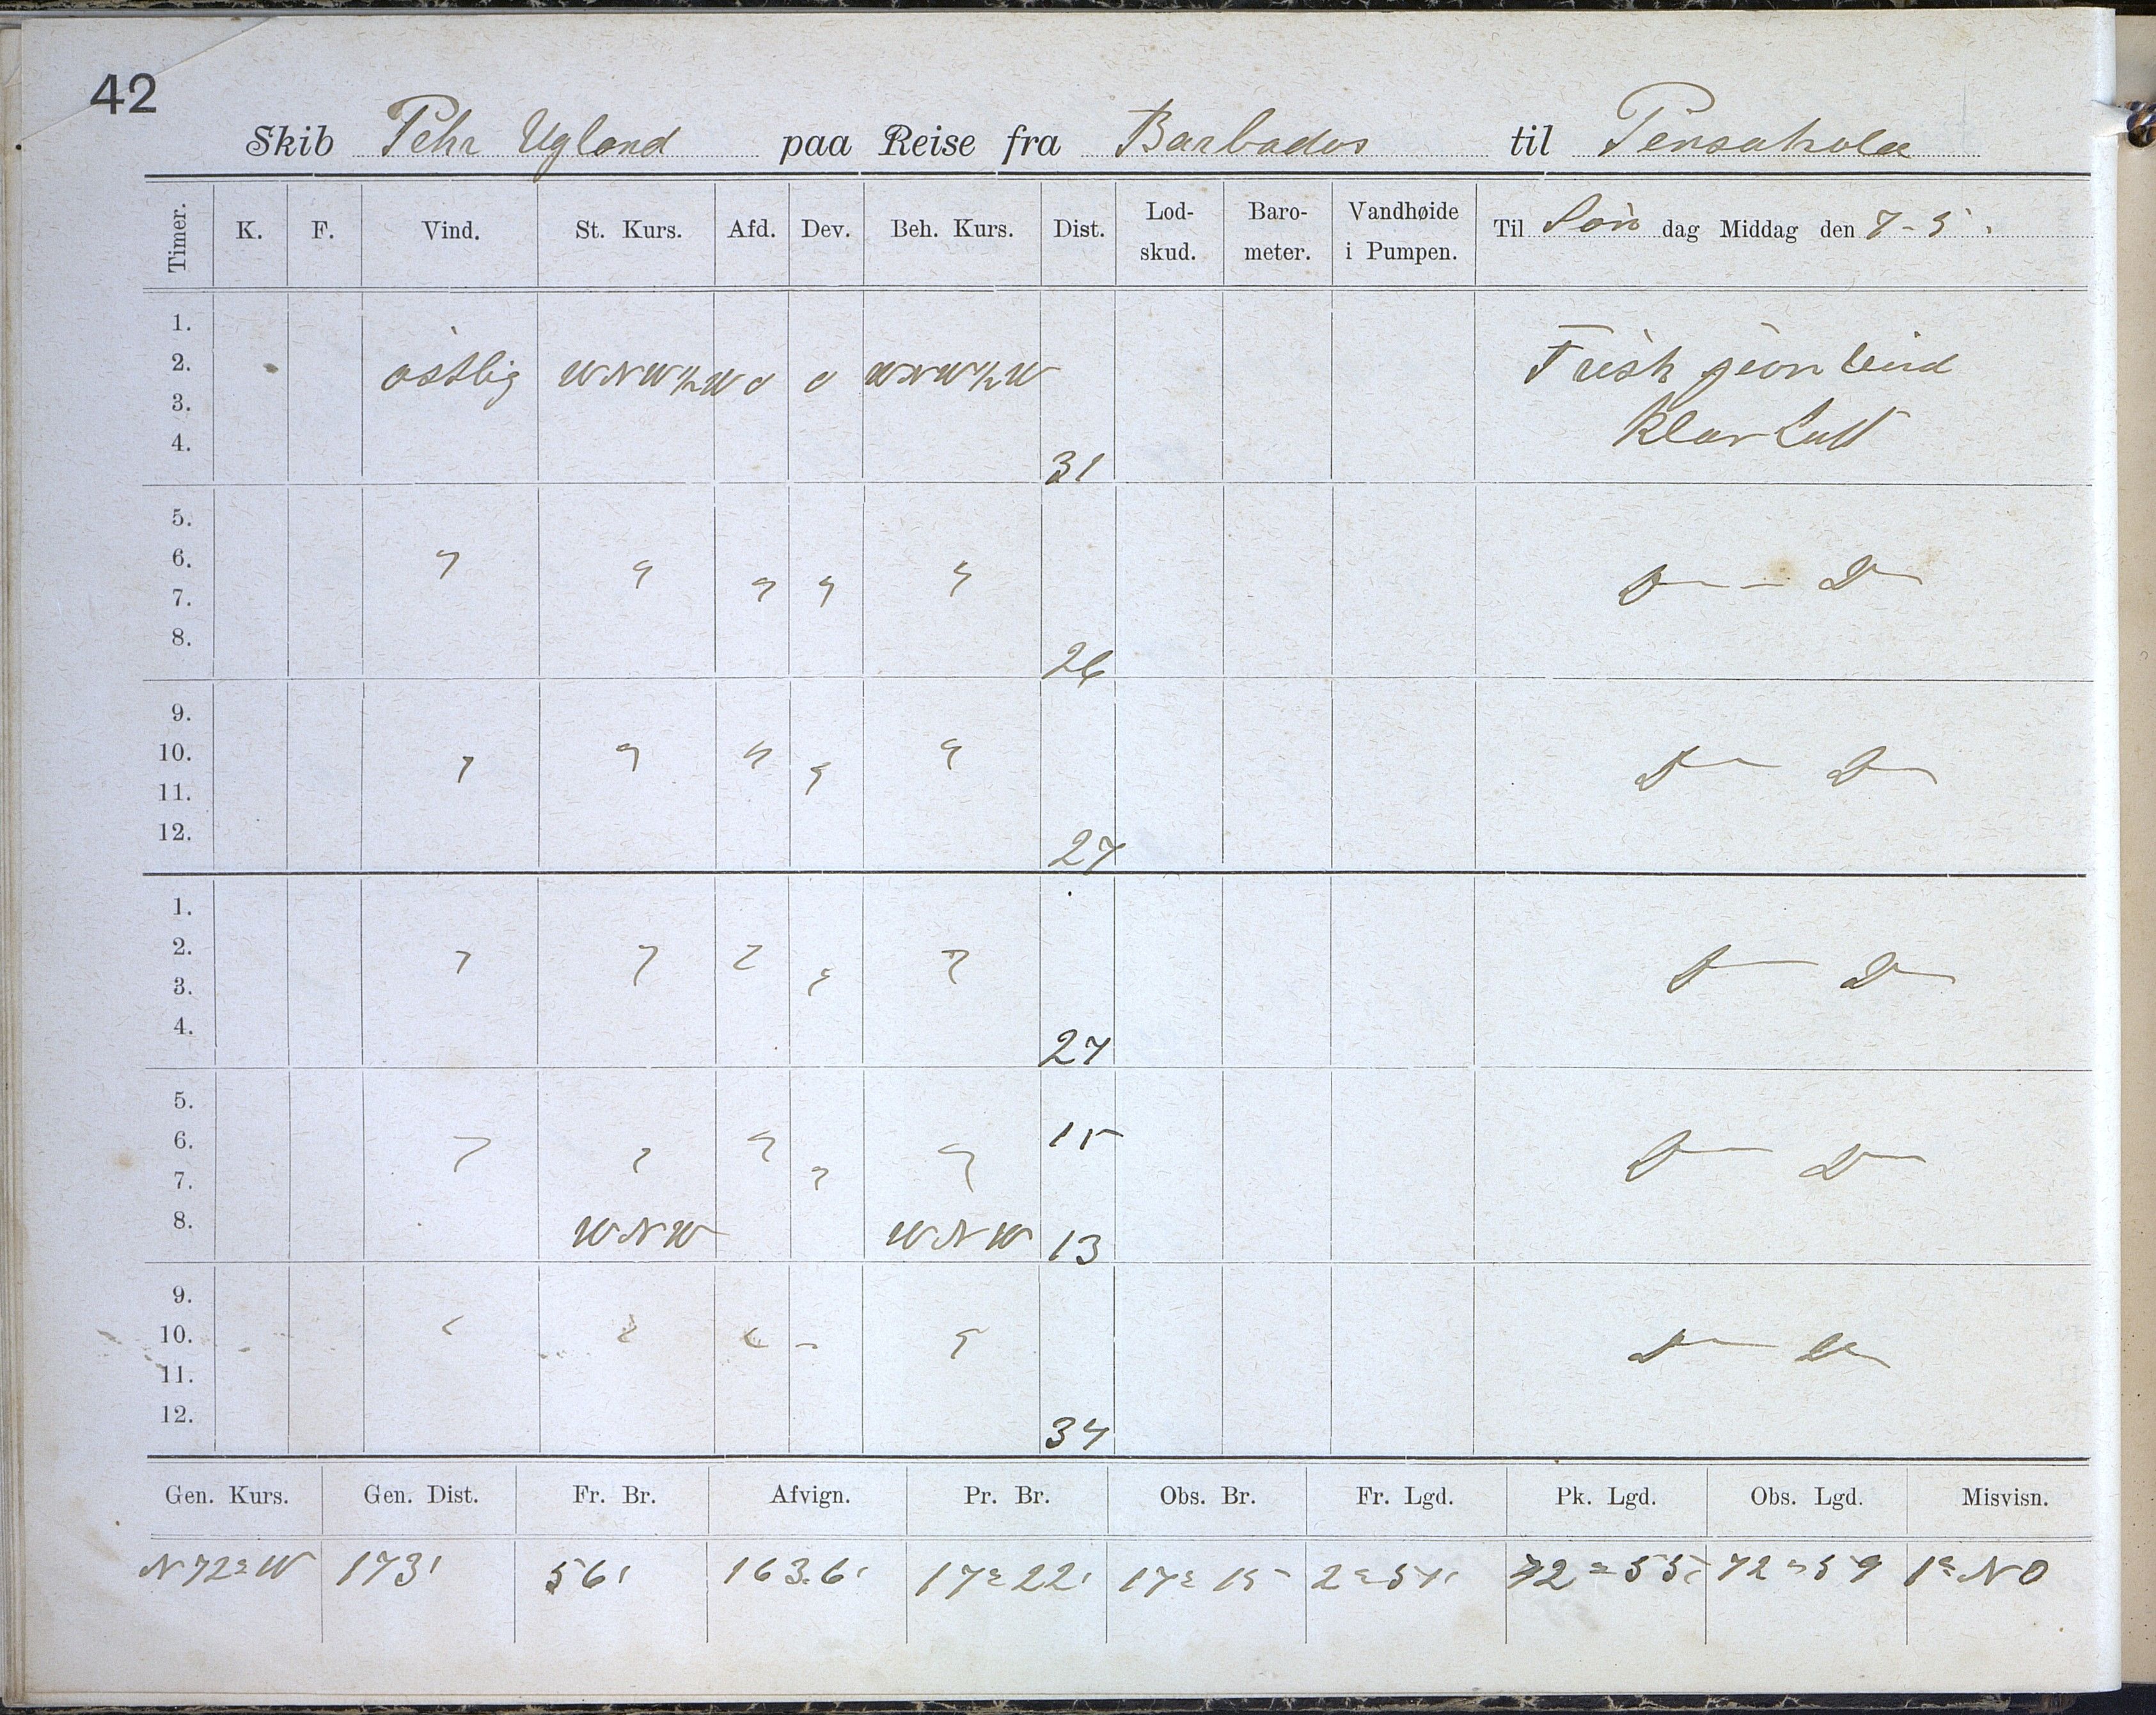 42
Skib Pehr Ugland paa Reise fra Barbados til Pensakola
Timer. K. F. Vind. St. Kurs. Afd. Dev. Beh. Kurs. Dist. Lod-skud. Baro-meter. Vandhøide i Pumpen. Til Søn dag Middag den 7-5.
1.
2. østlig WNW½W 0 0 WNW½W Frisk jevn Vind
3. Klar Luft
4. 31
5.
6. " " " " " D — D
7.
8. 26
9.
10. " " " " " D — D
11.
12. 27
1.
2. " " " " " D — D
3.
4. 27
5.
6. " " " " " 15 D — D
7.
8. WNW WNW 13
9.
10. " " " " " D — D
11.
12. 34
Gen. Kurs. Gen. Dist. Fr. Br. Afvign. Pr. Br. Obs. Br. Fr. Lgd. Pk. Lgd. Obs. Lgd. Misvisn.
N72°W 173' 56' 163.6' 17°22' 17°15 2°51' 72°55' 72°59 1° NO